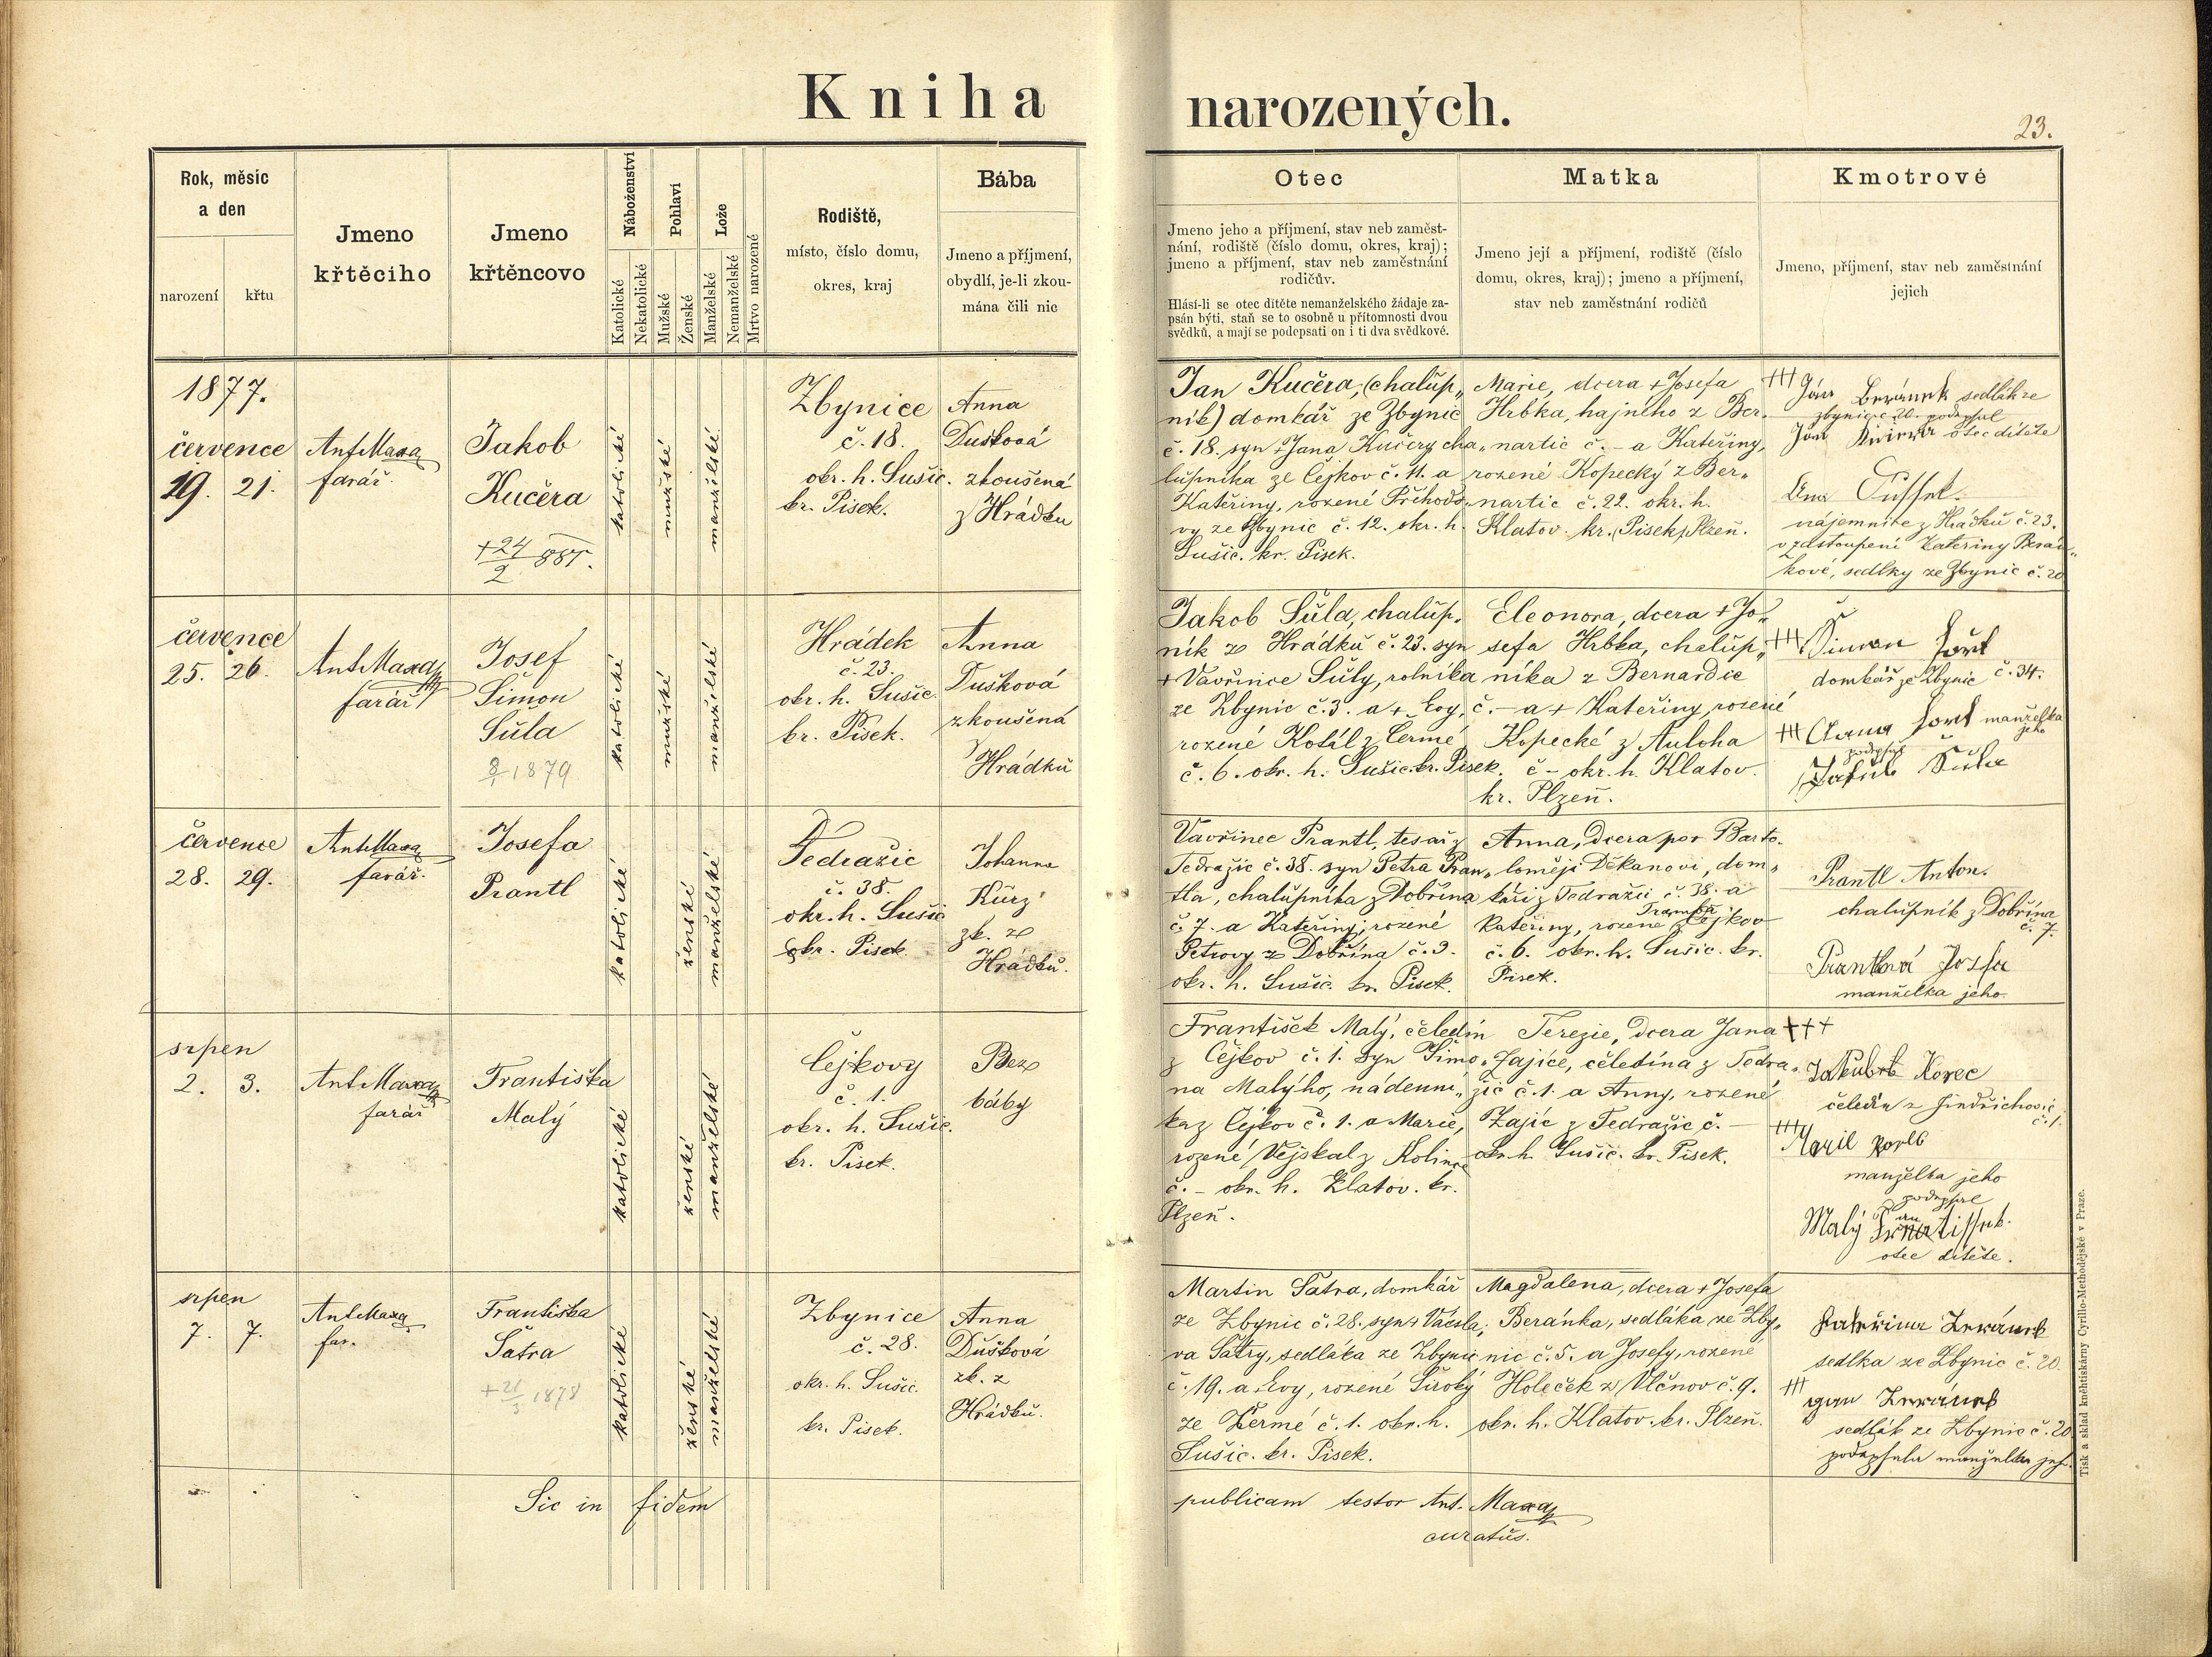 Kniha narozených.
23.
Rok, měsíc
a den
narození
křtu
Jmeno
křtěcího
Jmeno
křtěncovo
Náboženství
Katolické
Nekatolické
Pohlaví
Mužské
Ženské
Lože
Manželské
Nemanželské
Mrtvo narozené
Rodiště,
místo, číslo domu,
okres, kraj
Bába
Jmeno a příjmení,
obydlí, je-li zkou-
mána čili nic
Otec
Jmeno jeho a příjmení, stav neb zaměst-
nání, rodiště (číslo domu, okres, kraj);
jmeno a příjmení, stav neb zaměstnání
rodičův.
Hlásí-li se otec dítěte nemanželského žádaje za-
psán býti, staň se to osobně u přítomnosti dvou
svědků, a mají se podepsati on i ti dva svědkové.
Matka
Jmeno její a příjmení, rodiště (číslo
domu, okres, kraj); jmeno a příjmení,
stav neb zaměstnání rodičů
Kmotrové
Jmeno, příjmení, stav neb zaměstnání
jejich
1877.
července
19. 21.
Ant Maxa
farář.
Jakob
Kučera
+24/2 881.
katolické
mužské
manželské
Zbynice
č. 18.
okr. h. Sušic.
kr. Pisek.
Anna
Dušková
zkoušená
z Hrádku
Jan Kučera, (chalup„
ník) domkář ze Zbynic
č. 18. syn + Jana Kučery cha„
lupníka ze Čejkov č. 11. a
Kateřiny, rozené Příhodo„
vy ze Zbynic č. 12. okr. h.
Sušic. kr. Pisek.
Marie, dcera + Josefa
Hrbka, hajného z Ber„
nartic č. - a Kateřiny,
rozené Kopecký z Ber„
nartic č. 22. okr. h.
Klatov. kr. (Pisek) Plzeň.
+++ Jan Beránek sedlák ze
Zbynic č. 20. podepsal
Jan Kučera otec dítěte
nájemnice z Hrádku č. 23.
v zastoupení Kateřiny Berán„
kové, sedlky ze Zbynic č. 20
července
25. 26.
Ant Maxa
farář
Josef
Šimon
Šůla
8/1 1879
katolické
mužské
manželské
Hrádek
č. 23.
okr. h. Sušic.
kr. Pisek.
Anna
Dušková
zkoušená
z
Hrádků
Jakob Šůla, chalup„
ník z Hrádků č. 23. syn
+ Vavřince Šůly, rolníka
ze Zbynic č. 3. a + Evy,
rozené Kotál z Čermé
č. 6. okr. h. Sušic. kr. Pisek.
Eleonora, dcera + Jo„
sefa Hrbka, chalup„
níka z Bernardic
č. - a + Kateřiny, rozené
Kopecké z Auloha
č - okr. h. Klatov.
kr. Plzeň.
+++ Šimon
domkář ze Zbynic č. 34.
+++ Anna manželka
jeho
podepsal
Jakub Šůla
července
28. 29.
Ant Maxa
farář.
Josefa
Prantl
katolické
ženské
manželské
Tedražic
č. 38.
okr. h. Sušic
kr. Pisek.
Johanna
Kürz
zk. z
Hrádků.
Vavřinec Prantl, tesař z
Tedražic č. 38. syn Petra Pran„
tla, chalupníka z Dobřína
č. 7. a Kateřiny, rozené
Petrovy z Dobřína č. 9.
okr. h. Sušic. kr. Pisek.
Anna, dcera po+ Barto„
loměji Děkanovi, dom„
káři z Tedražic č. 38. a
Kateřiny, rozené z Čejkov
č. 6. okr. h. Sušic. kr.
Pisek.
Prantl Anton.
chalupník z Dobřína
č. 7.
Prantlná
manželka jeho.
srpen
2. 3.
Ant Maxa
farář
Františka
Malý
katolické
ženské
manželské
Čejkovy
č. 1.
okr. h. Sušic.
kr. Pisek.
Bez
báby
František Malý, čeledín
z Čejkov č. 1. syn Šimo„
na Malýho, nádenní„
ka z Čejkov č. 1. a Marie,
rozené Vejskal z Kolince
č. - okr. h. Klatov. kr.
Plzeň.
Terezie, dcera Jana
Zajíce, čeledína z Tedra„
žic č. 1. a Anny, rozené
Zajíc z Tedražic č. -
okr. h. Sušic. kr. Pisek.
+++
Jakub Korec
čeledín z Jindřichovic
č. 1.
+++
manželka jeho
podepsal
Malý
otec dítěte.
srpen
7. 7.
Ant Maxa
far.
Františka
Šatra
+21/3 1878
katolické
ženské
manželské
Zbynice
č. 28.
okr. h. Sušic.
kr. Pisek.
Anna
Dušková
zk. z
Hrádků.
Martin Šatra, domkář
ze Zbynic č. 28. syn + Václa„
va Šatry, sedláka ze Zbynic
č. 19. a Evy, rozené Široký
ze Žermé č. 1. okr. h.
Sušic. kr. Pisek.
Magdalena, dcera + Josefa
Beránka, sedláka ze Zby„
nic č. 5. a Josefy, rozené
Holeček z Vlčnov č. 9.
okr. h. Klatov. kr. Plzeň.
Kateřina Beránek
sedlka ze Zbynic č. 20.
+++
Jan Beránek
sedlák ze Zbynic č. 20
podepsala manželka jeho
Sic in fidem publicam testor Ant. Maxa
curatus.
Tisk a sklad knihtiskárny Cyrillo-Methodějské v Praze.